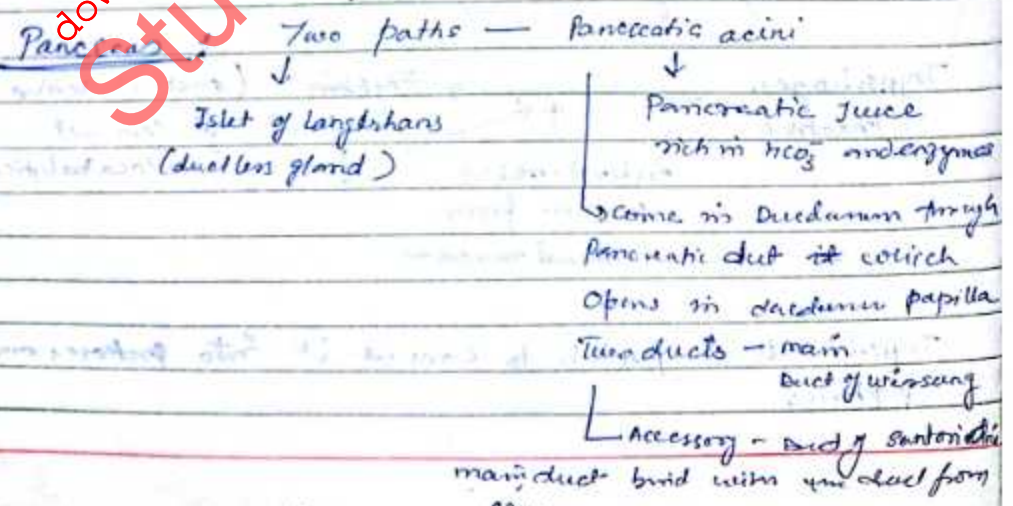 Pancreas : Two paths — Pancreatic acini
Islet of Langerhans
(ductless gland)
Pancreatic Juice
rich in HCO3- and enzymes
come in Duedunum through
Pancreatic duct it which
Opens in duedunum papilla
Two ducts - main
Duct of wirsung
Accessory - Duct of Santorini
main duct bind with duct from
dow
Stu